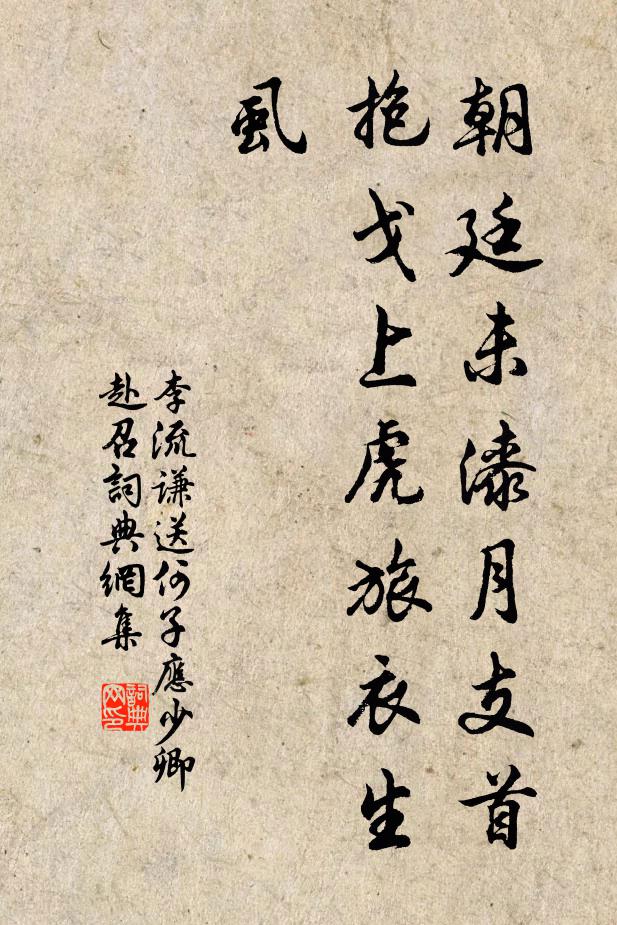 朝廷未漆月支首
抱戈上虎旅衣生
虱
李流謙送何子應少卿
赴召詞典網集
詞典网印